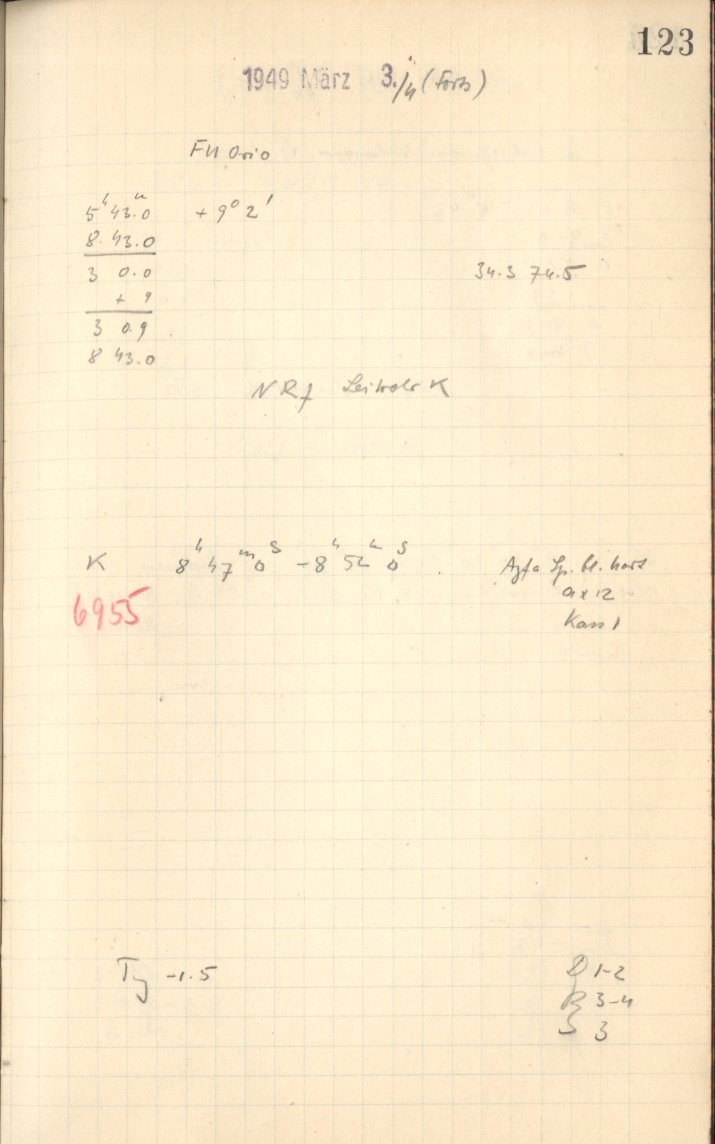 123
1949 März 3./4 (Forts)
FU Orio
5ʰ 43ᵐ.0 + 9° 2'
8. 43.0
3 0.0
34.3 74.5
+ 9
3 0.9
8 43.0
NRf Leitrohr K
K 8ʰ 47ᵐ 0ˢ – 8ʰ 52ᵐ 0ˢ
Agfa Sp. bl. hart
9 x 12
6955
Kass 1
T -1.5
D 1-2
R 3-4
S 3